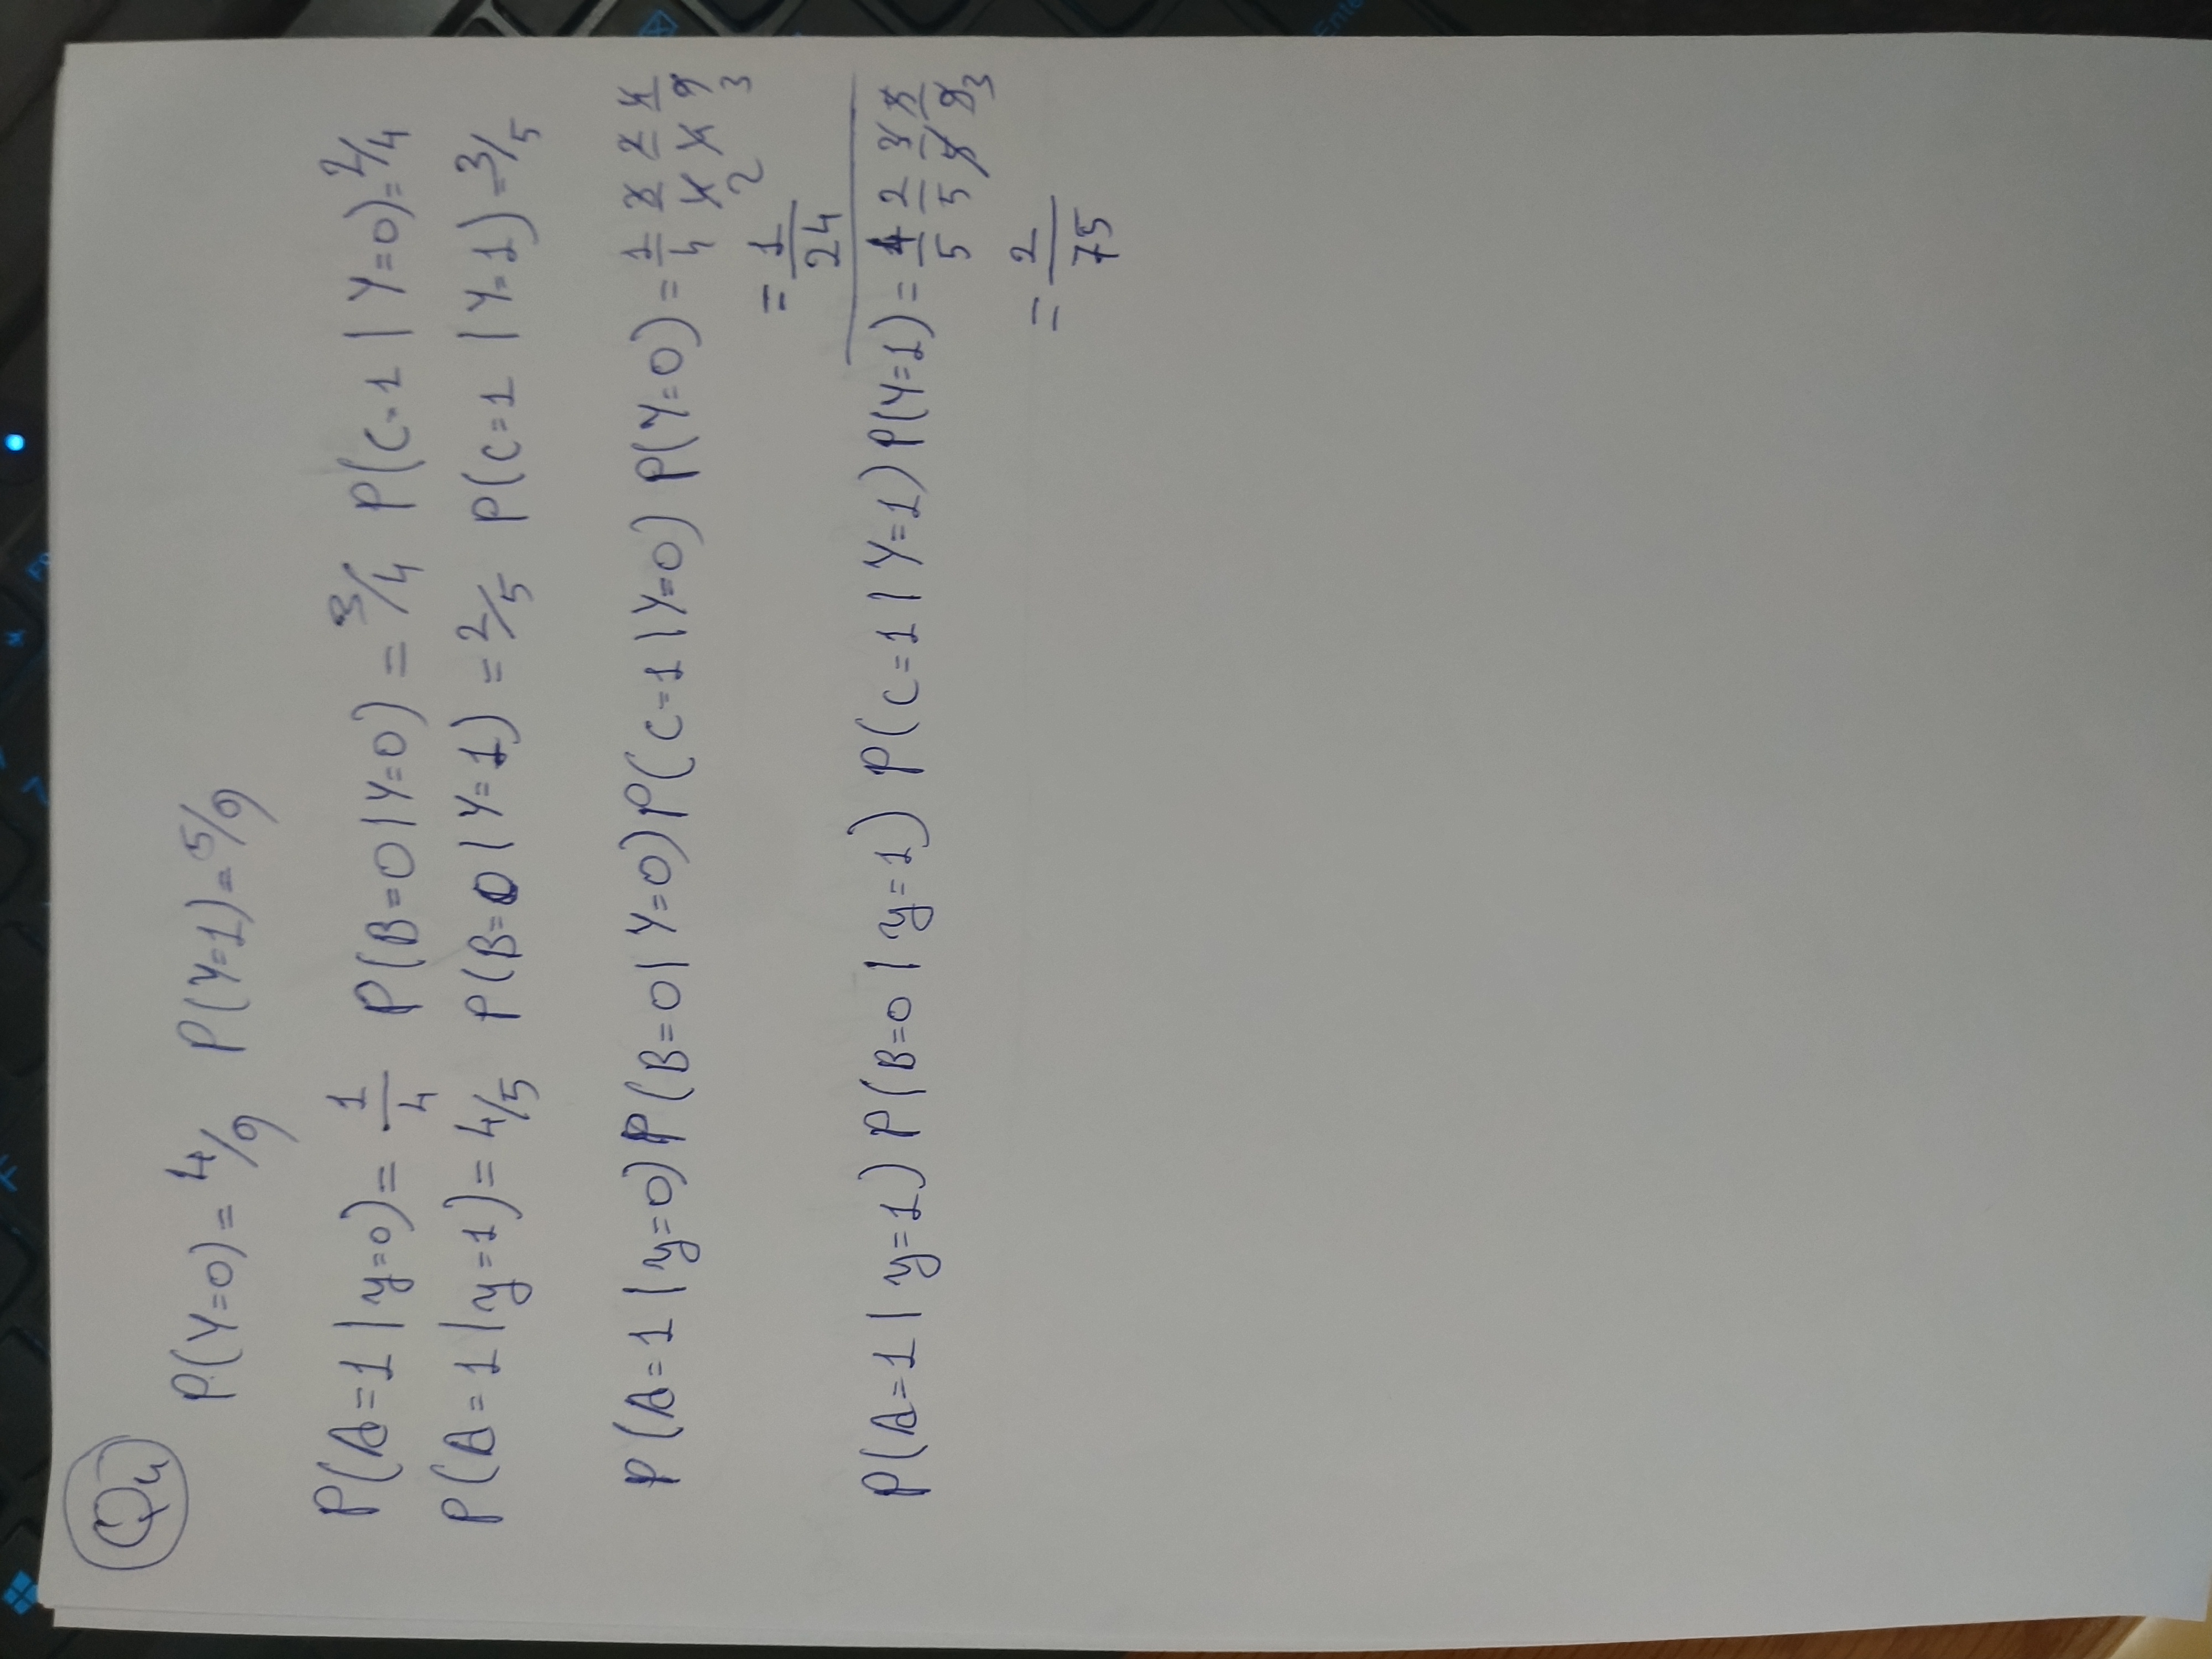 Q4
P(Y=0) = 4/9 P(Y=1) = 5/9
P(A=1 | y=0) = 1/4 P(B=0 | Y=0) = 3/4 P(C=1 | Y=0) = 2/4
P(A=1 | y=1) = 4/5 P(B=0 | Y=1) = 2/5 P(C=1 | Y=1) = 3/5
P(A=1 | y=0) P(B=0 | Y=0) P(C=1 | Y=0) P(Y=0) = 1/4 3/4 2/4 4/9
2 3
= 1/24
P(A=1 | y=1) P(B=0 | y=1) P(C=1 | Y=1) P(Y=1) = 4/5 2/5 3/5 5/9 3
= 2/75